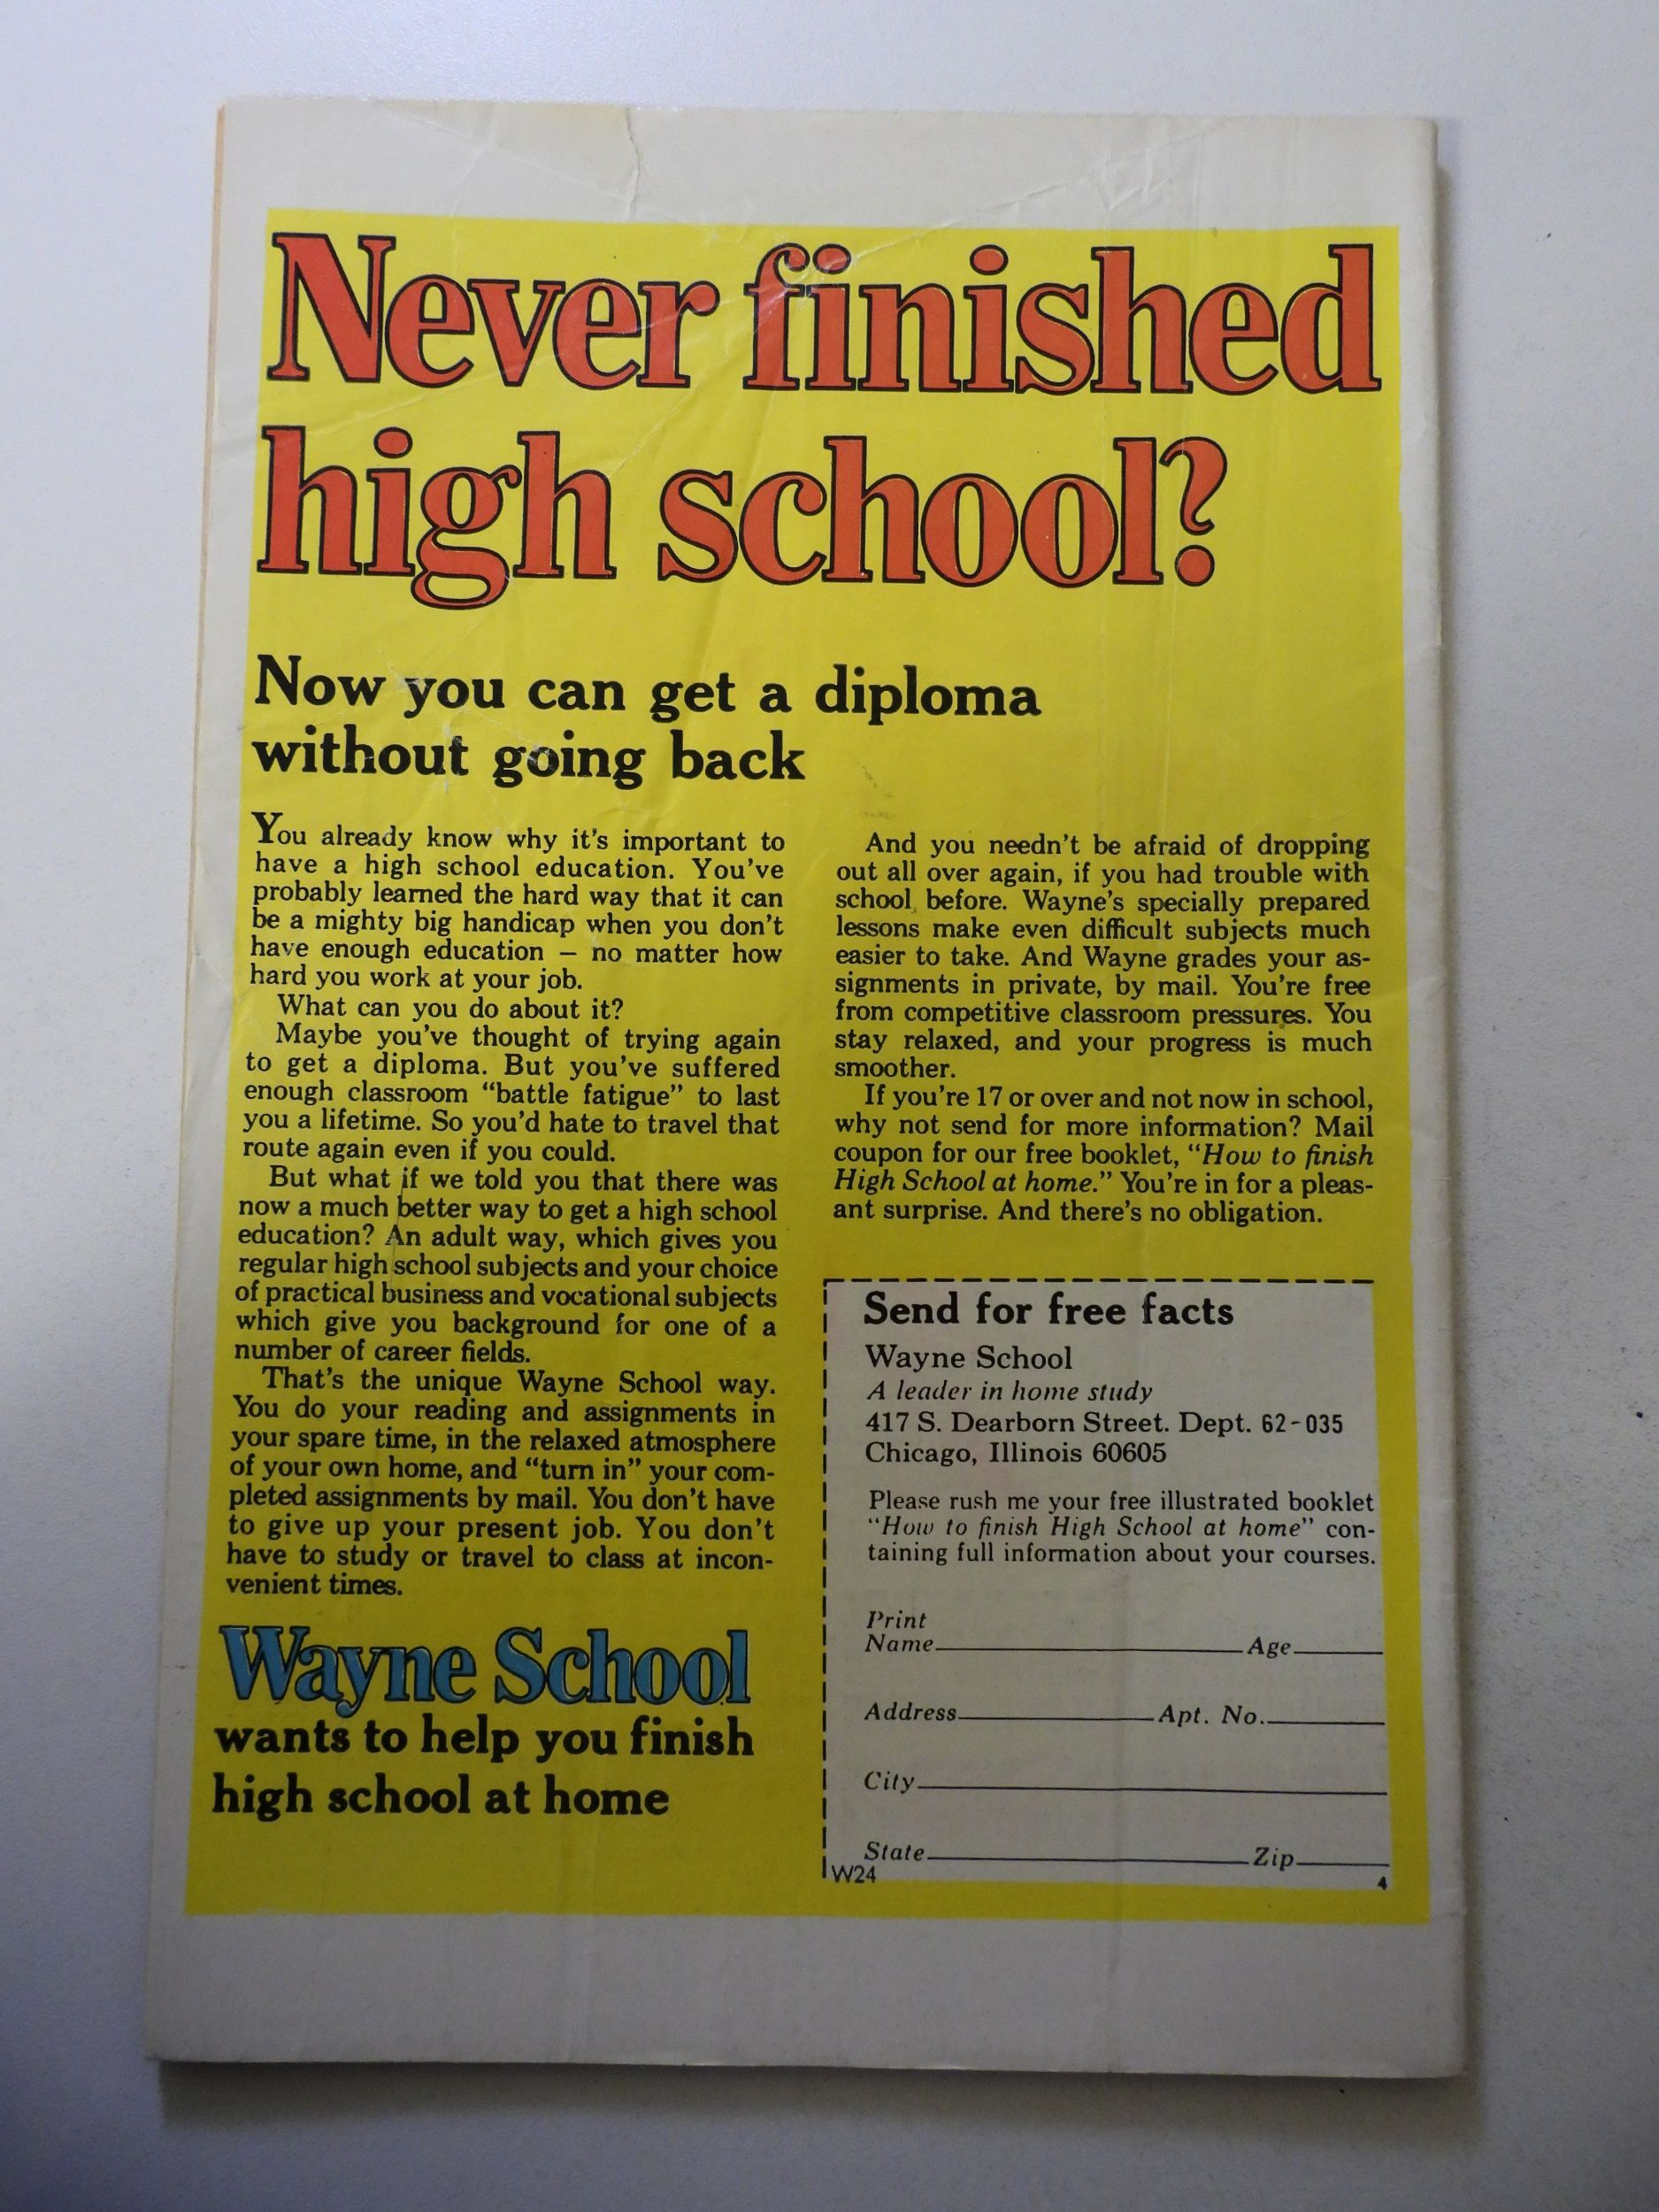 Never finished
high school?
Now you can get a diploma
without going back
You already know why it's important to
have a high school education. You've
probably learned the hard way that it can
be a mighty big handicap when you don't
have enough education – no matter how
hard you work at your job.
What can you do about it?
Maybe you've thought of trying again
to get a diploma. But you've suffered
enough classroom “battle fatigue” to last
you a lifetime. So you'd hate to travel that
route again even if you could.
But what if we told you that there was
now a much better way to get a high school
education? An adult way, which gives you
regular high school subjects and your choice
of practical business and vocational subjects
which give you background for one of a
number of career fields.
That's the unique Wayne School way.
You do your reading and assignments in
your spare time, in the relaxed atmosphere
of your own home, and “turn in” your com-
pleted assignments by mail. You don't have
to give up your present job. You don't
have to study or travel to class at incon-
venient times.
Wayne School
wants to help you finish
high school at home
And you needn't be afraid of dropping
out all over again, if you had trouble with
school before. Wayne's specially prepared
lessons make even difficult subjects much
easier to take. And Wayne grades your as-
signments in private, by mail. You're free
from competitive classroom pressures. You
stay relaxed, and your progress is much
smoother.
If you're 17 or over and not now in school,
why not send for more information? Mail
coupon for our free booklet, “How to finish
High School at home.” You're in for a pleas-
ant surprise. And there's no obligation.
Send for free facts
Wayne School
A leader in home study
417 S. Dearborn Street. Dept. 62-035
Chicago, Illinois 60605
Please rush me your free illustrated booklet
“How to finish High School at home” con-
taining full information about your courses.
Print
Name Age
Address Apt. No.
City
State Zip
W24 4